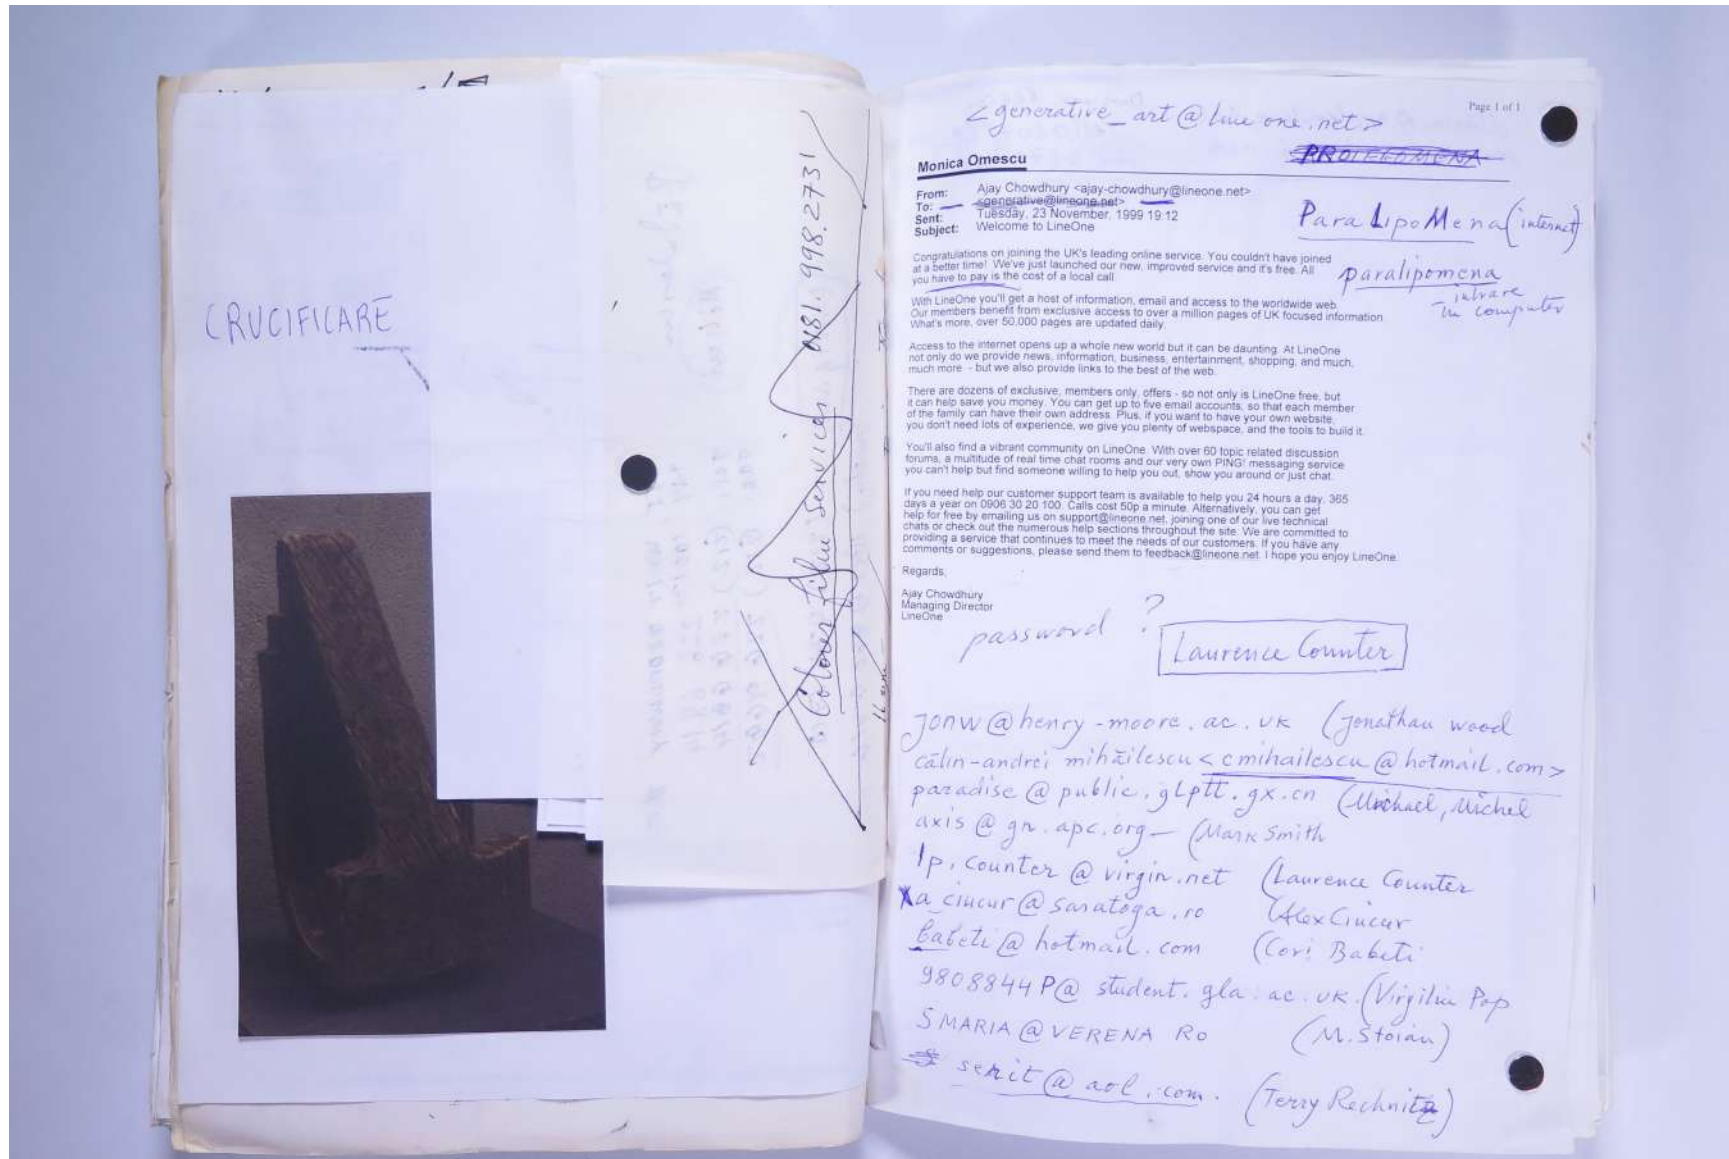 CRUCIFICARE
Colour film services 0181.998.2731
<generative_art@line one.net>
Page 1 of 1
PROLEGOMENA
Monica Omescu
From: Ajay Chowdhury <ajay-chowdhury@lineone.net>
To: <generative@lineone.net>
Sent: Tuesday, 23 November, 1999 19:12
Subject: Welcome to LineOne
ParaLipoMena (internet)
paralipomena
- intrare
in computer
Congratulations on joining the UK's leading online service. You couldn't have joined
at a better time! We've just launched our new, improved service and it's free. All
you have to pay is the cost of a local call.
With LineOne you'll get a host of information, email and access to the worldwide web.
Our members benefit from exclusive access to over a million pages of UK focused information.
What's more, over 50,000 pages are updated daily.
Access to the internet opens up a whole new world but it can be daunting. At LineOne
not only do we provide news, information, business, entertainment, shopping, and much,
much more - but we also provide links to the best of the web.
There are dozens of exclusive, members only, offers - so not only is LineOne free, but
it can help save you money. You can get up to five email accounts, so that each member
of the family can have their own address. Plus, if you want to have your own website,
you don't need lots of experience, we give you plenty of webspace, and the tools to build it.
You'll also find a vibrant community on LineOne. With over 60 topic related discussion
forums, a multitude of real time chat rooms and our very own PING! messaging service
you can't help but find someone willing to help you out, show you around or just chat.
If you need help our customer support team is available to help you 24 hours a day, 365
days a year on 0906 30 20 100. Calls cost 50p a minute. Alternatively, you can get
help for free by emailing us on support@lineone.net, joining one of our live technical
chats or check out the numerous help sections throughout the site. We are committed to
providing a service that continues to meet the needs of our customers. If you have any
comments or suggestions, please send them to feedback@lineone.net. I hope you enjoy LineOne.
Regards,
Ajay Chowdhury
Managing Director
LineOne
password ?
Laurence Counter
jonw@henry-moore.ac.uk (Jonathan wood
călin-andrei mihăilescu <cmihailescu@hotmail.com>
paradise@public.glptt.gx.cn (Michael, Michel
axis@gn.apc.org - (Mark Smith
lp.counter@virgin.net (Laurence Counter
a_ciucur@saratoga.ro (Alex Ciucur
babeti@hotmail.com (Cori Babeti
9808844P@student.gla.ac.uk. (Virgiliu Pop
SMARIA@VERENA RO (M. Stoian)
serit@aol.com. (Terry Rechnitz)